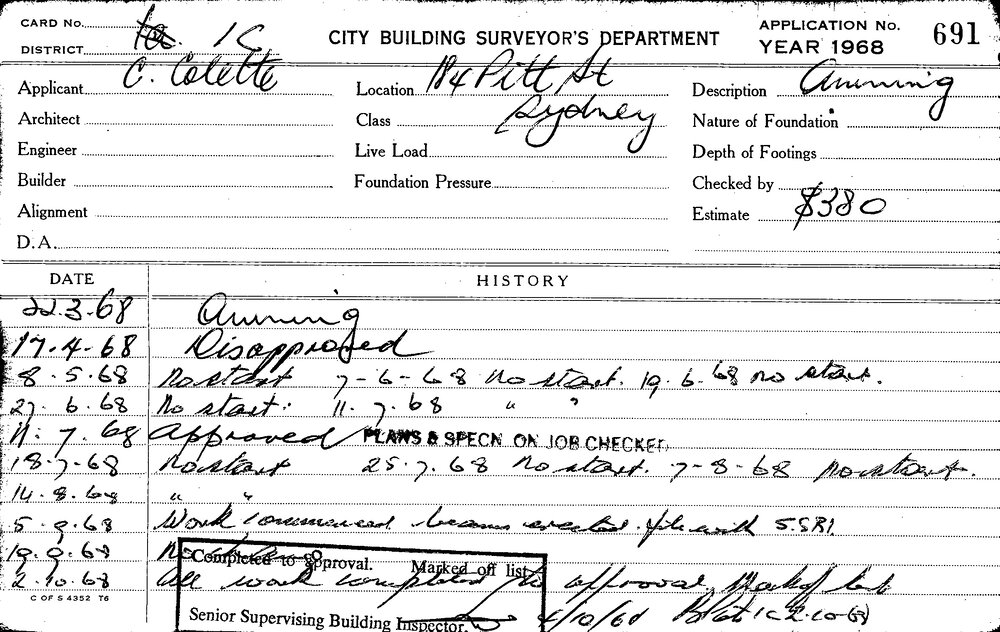 CARD No.
DISTRICT 1C
CITY BUILDING SURVEYOR'S DEPARTMENT
APPLICATION No. 691
YEAR 1968
Applicant C. Colette
Location 184 Pitt St
Sydney
Description Awning
Architect
Class
Nature of Foundation
Engineer
Live Load
Depth of Footings
Builder
Foundation Pressure
Checked by
Alignment
Estimate $380
D.A.
DATE HISTORY
22.3.68 Awning
17.4.68 Disapproved
8.5.68 No start 7-6-68 No start. 19.6.68 no start.
27.6.68 No start: 11.7.68 " "
11.7.68 Approved PLANS & SPECN ON JOB CHECKED
18.7.68 No start 25.7.68 No start. 7-8-68 No start.
14.8.68 " "
5.9.68 Work commenced beams erected. file with S.S.R.I.
19.9.68 No
Completed to approval. Marked off list
2.10.68 All work completed to approval Mark off list
C OF S 4352 T6
Senior Supervising Building Inspector. 4/10/68 1C 2-10-68